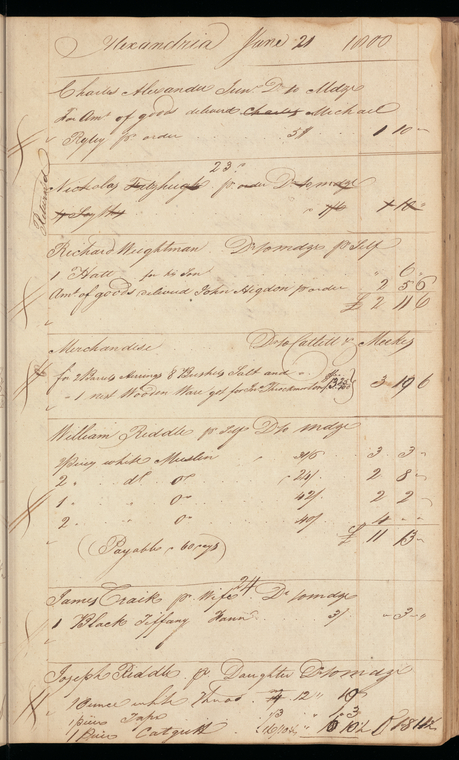 Alexandria June 21 1800
Charles Alexander Junr Dr to Mdze
For Amt of goods delivered Charles Michael
Ryley pr order 59 1 10 "
23d
Returned
Nicholas Fitzhugh pr order Dr to mdze
Richard Weightman Dr to mdze pr Self
1 Hatt for his Son " 6 "
Amt of goods delivered John Higdon pr order 2 5 6
£ 2 11 6
Merchandise Dr to Catlett &
for 2 Barrels 8 Bushels Salt and
1 nest Wooden Ware got for 3 19 6
William Riddle pr Self Dr to mdze
1 Piece white Muslin 3 3 "
2 " do do 24/ 2 8 "
1 " " Do 42/ 2 2 "
2 " " Do 40/ 4 " "
£ 11 13 "
(Payable 60 days)
24
James Craik pr Wife Dr to mdze
1 Black Tiffany Fann 3/ " 3 "
Joseph Riddle pr Daughter Dr to mdze
1 Ounce white Thread
1 piece Tape 1.3
1 Piece Catgutt